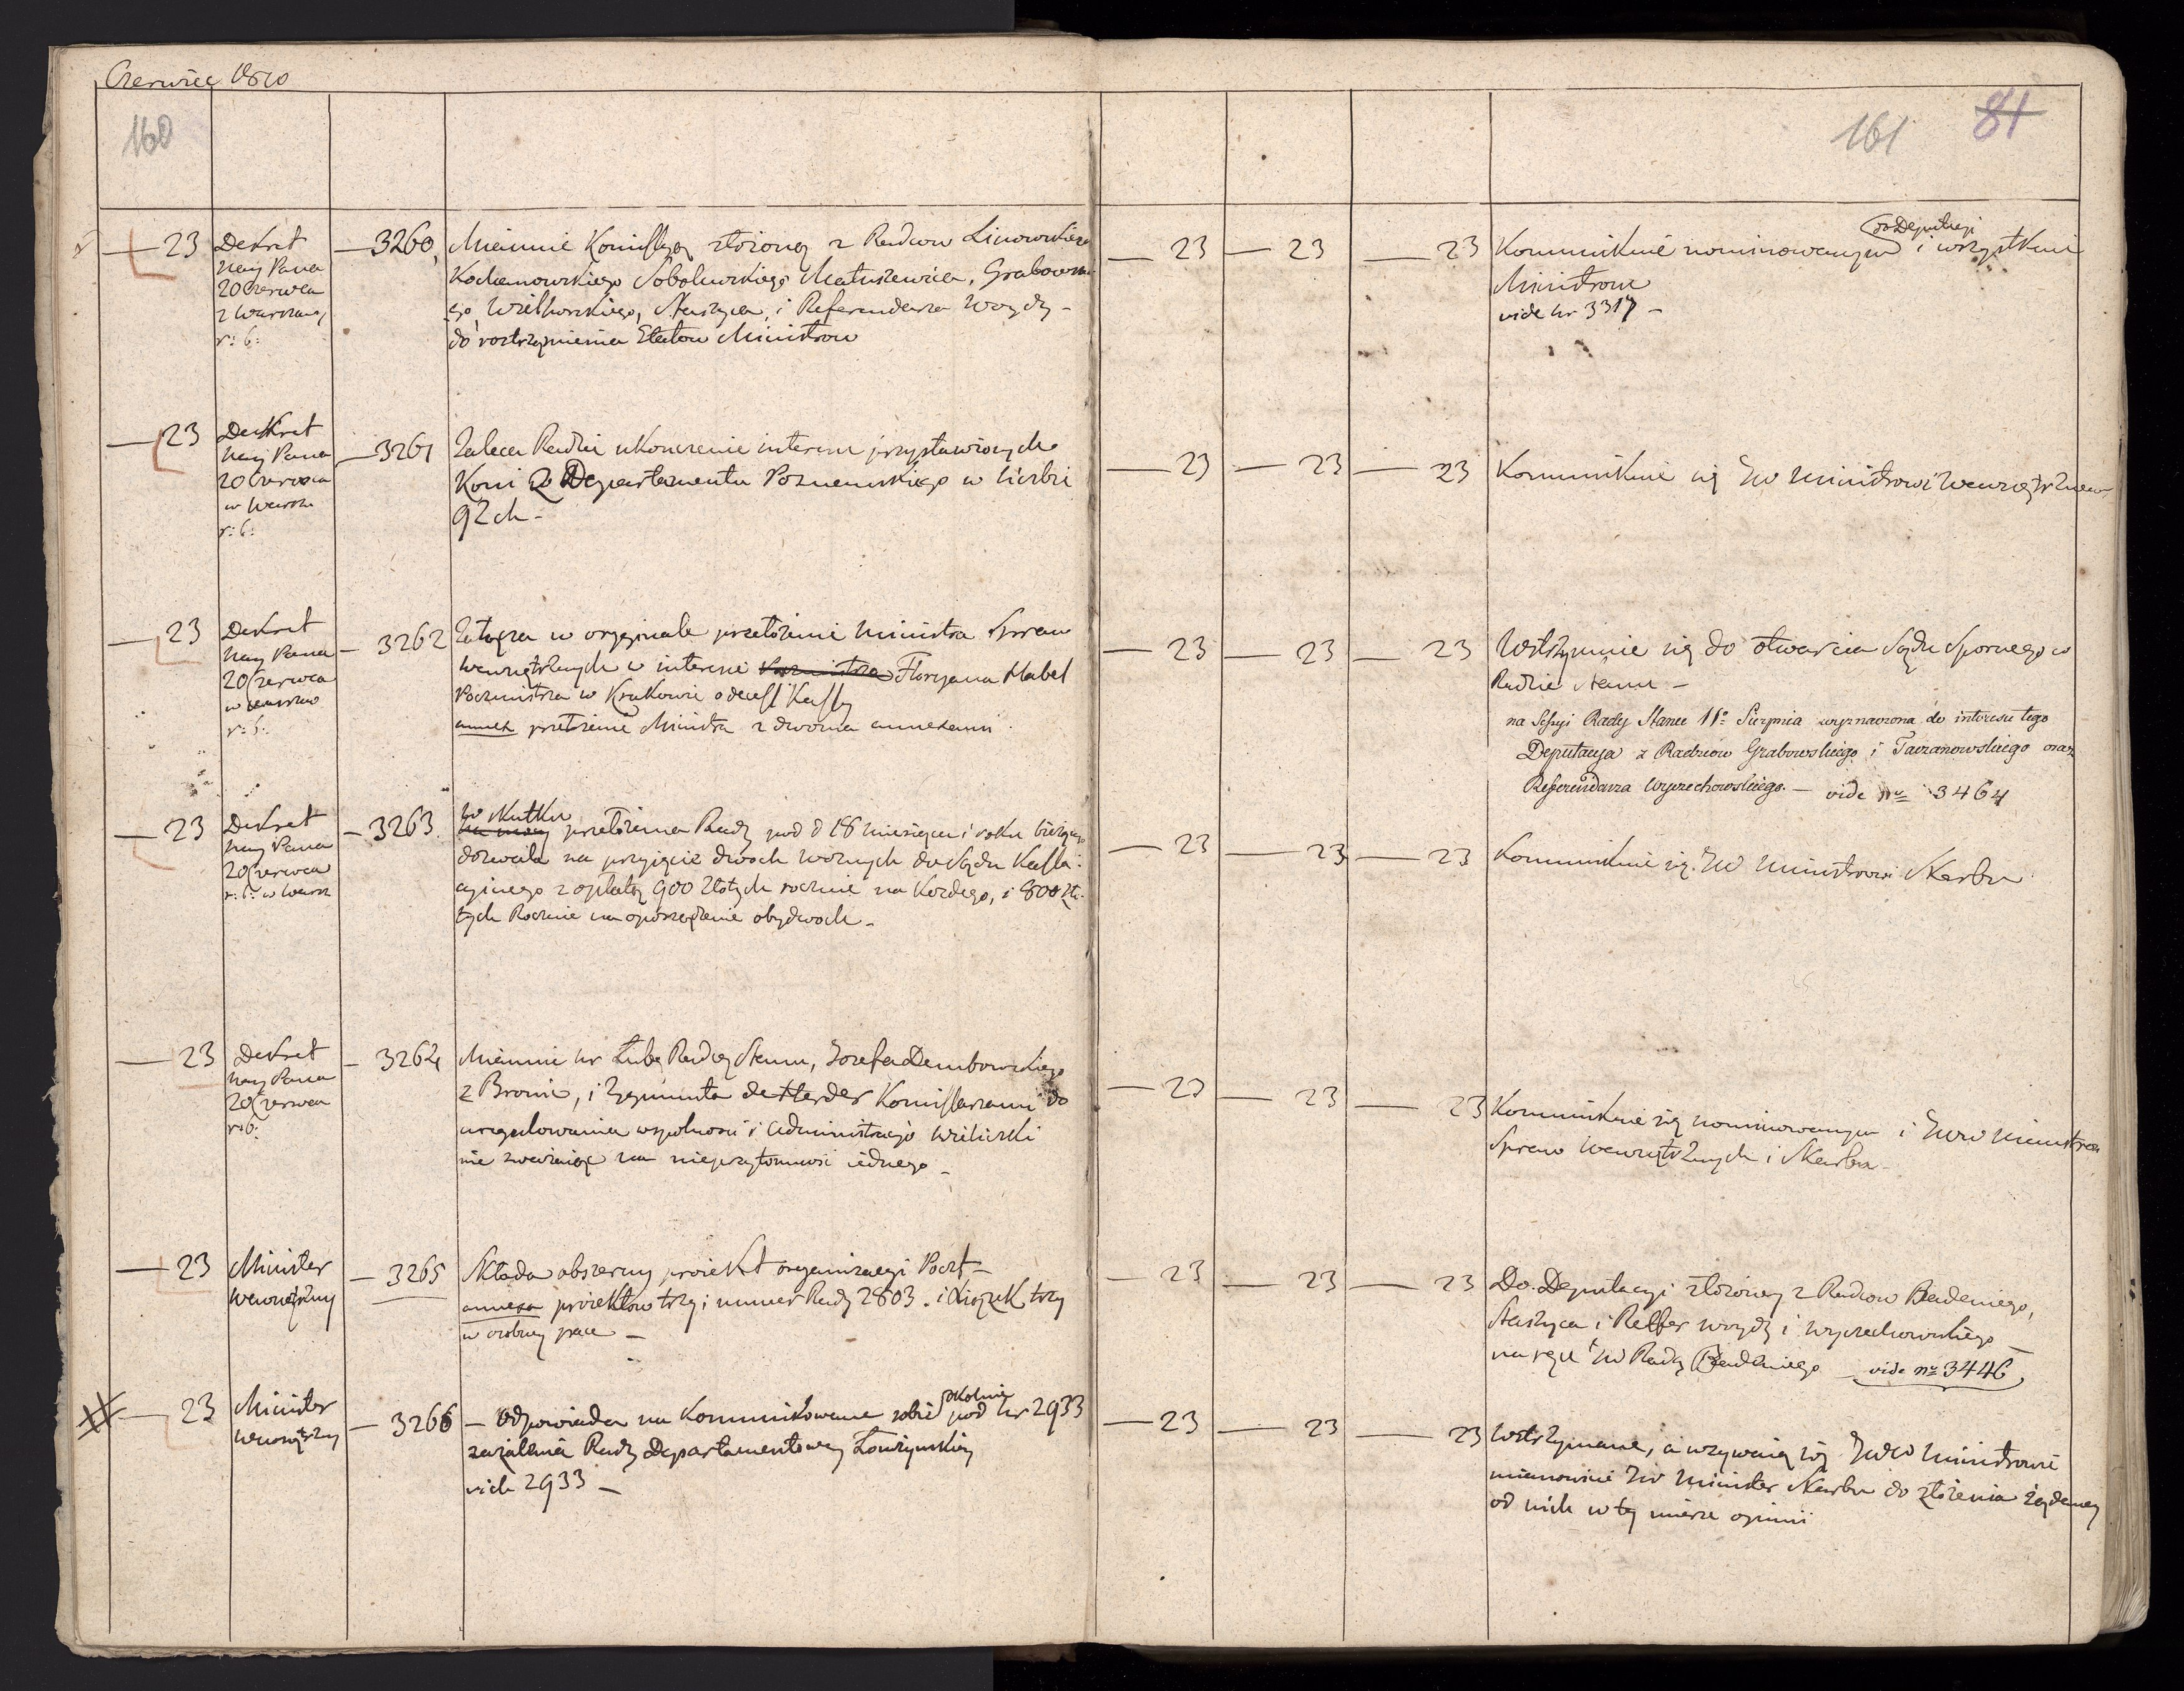 Czerwiec 1810
160
161 81
— 23 Dekret — 3260, Mianuie Komissyą złożoną z Radcow Linowskiego
Nay Pana Kochanowskiego Sobolewskiego Matuszewica, Grabowski
20 Czerwca ego Wielhorskiego, Staszyca, i Referendarza Woydy -
z Warszawy do rostrząśnienia Etatow Ministrow
r: 6:
— 23 — 23 — 23 Kommunikuie nominowanym do Deputacyi i wszystkim
Ministrom
vide Nr 3317 -
— 23 Dekret — 3261 Zaleca Radzie ukonczenie interesu przystawionych
Nay Pana Koni z Departamentu Poznanskiego w liczbie
20 Czerwca 92ch -
w Warsza
r: 6:
— 23 — 23 — 23 Kommunikuie się JW Ministrowi Wewnętrznem
— 23 Dekret — 3262 Załącza w oryginale przełożenie Ministra Spraw
Nay Pana Wewnętrznych w interesie Floryana Habel
20 Czerwca Poczmistrza w Krakowie o Kassy
w Warszaw annex przełożenie Ministra z dwoma annexami
r: 6:
— 23 — 23 — 23 Wstrzymuie się do otwarcia Sądu Spornego w
Radzie Stanu —
na Sessyi Rady Stanu 11o Sierpnia wyznaczona do interesu tego
Deputacya z Radzców Grabowskiego i Taczanowskiego oraz
Referendarza Wyczechowskiego. — vide nro 3464
— 23 Dekret — 3263. w skutku przełożenia Rady pod d 18 miesiąca i roku bieżącego
Nay Pana dozwala na przyięcie dwoch woznych do Sądu Kassa-
20 Czerwca cyinego z opłatą 900 złotych rocznie na Kozdego, i 800 zło-
r: 6: w Warsz tych Rocznie na oporządzenie obydwoch -
— 23 — 23 — 23 Kommunikuie się JW Ministrowi Skarbu
— 23 Dekret — 3264 Mianuie Nr Łubę Radcę Stanu, Jozefa Dembowskiego
Nay Pana z Bronic, i Zygmunta de Herder Komissarzami do
20 Czerwca uregulowania wspolnosci i administracyi Wieliczki
r: 6: nie zwazaiąc na nieprzytomnosc iednego -
— 23 — 23 — 23 Kommunikuie się nominowanym i JWW Ministrom
Spraw Wewnętrznych i Skarbu -
— 23 Minister — 3265 Składa obszerny proiekt organizacyi Poczt -
Wewnętrzny annexa proiektow trzy i numer Rady 2803. i Książek trzy
w osobney pace —
— 23 — 23 — 23 Do Deputacyi złożoney z Radcow Badeniego,
Staszyca i Reffer Woydy i Wyczechowskiego —
na ręce JW Radcy Badeniego — vide nro 3446
— 23 Minister — 3266 — Odpowiada na Kommunikowane sobie okolnie pod Nr 2933
Wewnętrzny zażalenia Rady Departamentowey Łomżynskiey
vide 2933 —
— 23 — 23 — 23 Wstrzymane, a wzywaią się JWW Ministrowie
mianowicie JW Minister Skarbu do złożenia żądaney
od nich w tey mierze opinii